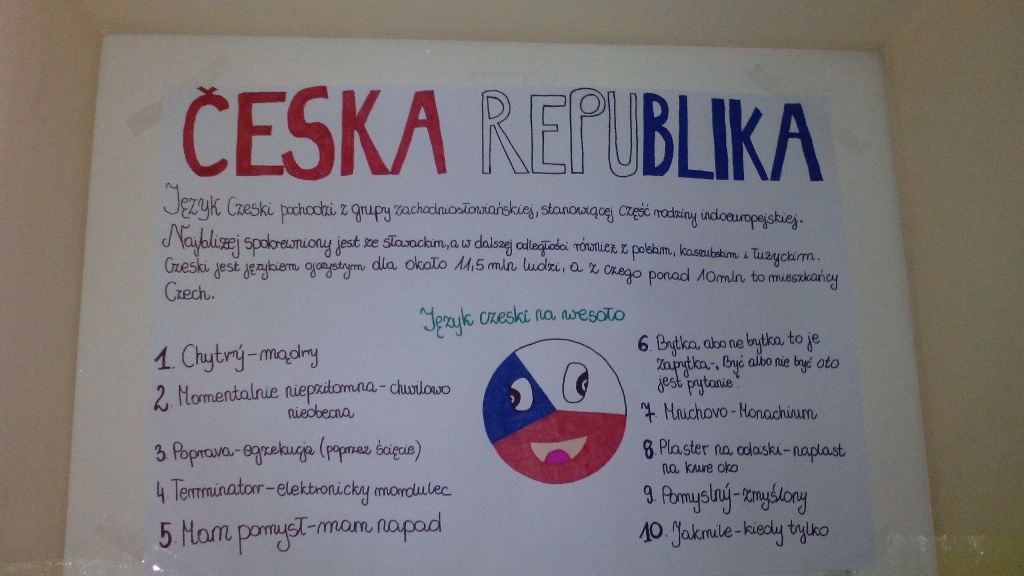 ČESKA REPUBLIKA
Język Czeski pochodzi z grupy zachodniosłowiańskiej, stanowiącej część rodziny indoeuropejskiej.
Najbliżej spokrewniony jest ze słowackim, a w dalszej odległości również z polskim, kaszubskim i łużyckim.
Czeski jest językiem ojczystym dla około 11,5 mln ludzi, a z czego ponad 10 mln to mieszkańcy
Czech.
Język czeski na wesoło
1. Chytrý-mądry
2. Momentalnie niepziłomna-chwilowo
nieobecna
3. Poprava-egzekucja (poprzez ścięcie)
4. Terrminatorr-elektronicky mordulec
5. Mam pomysł-mam napad
6. Bytka abo ne bytka to je
zapytka-. Być albo nie być oto
jest pytanie.
7. Mnichovo-Monachium
8. Plaster na odciski-naplast
na kure oko
9. Pomyslný-zmyślony
10. Jakmile-kiedy tylko